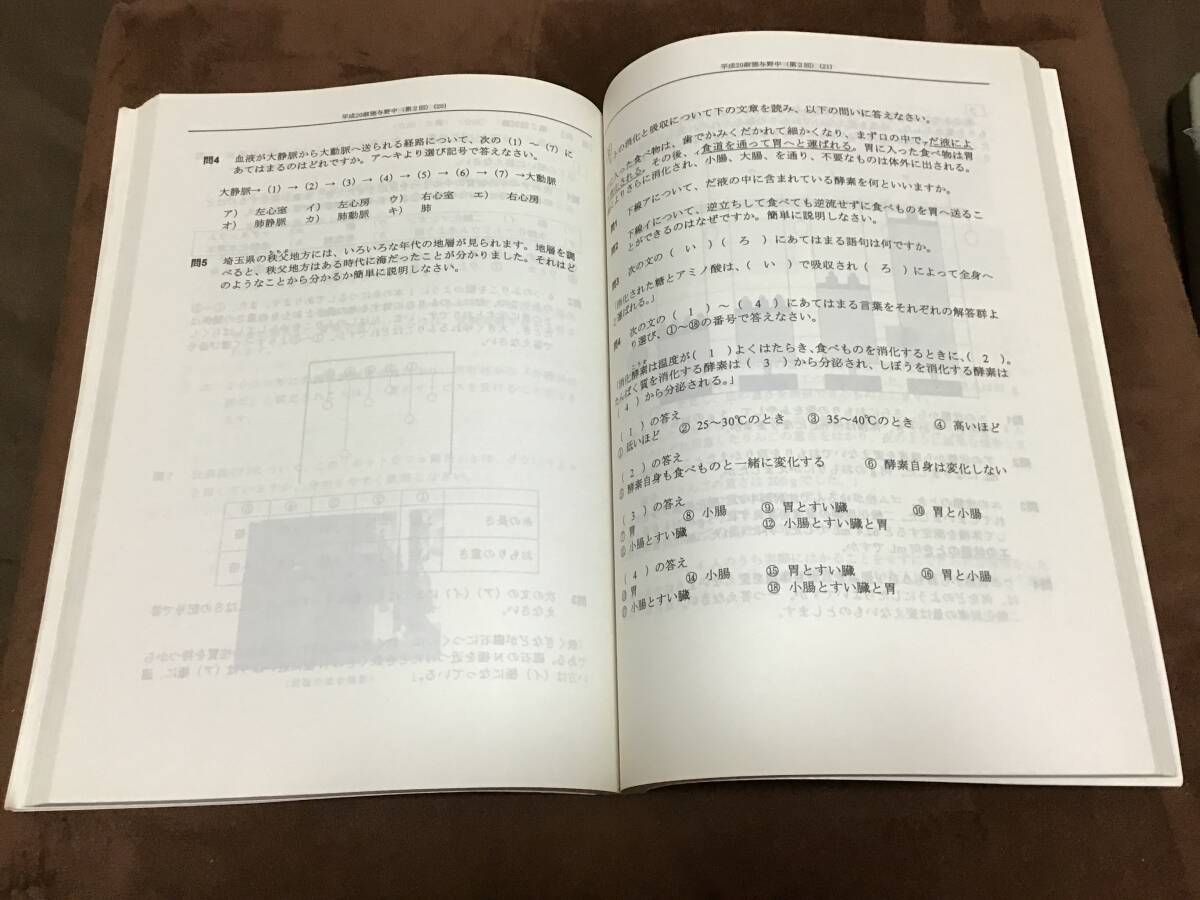 平成20淑徳与野中(第2回)(20)
問4 血液が大静脈から大動脈へ送られる経路について、次の(1)~(7)に
あてはまるのはどれですか。ア~キより選び記号で答えなさい。
大静脈→(1)→(2)→(3)→(4)→(5)→(6)→(7)→大動脈
ア) 左心室 イ) 左心房 ウ) 右心室 エ) 右心房
オ) 肺静脈 カ) 肺動脈 キ) 肺
問5 埼玉県の秩父地方には、いろいろな年代の地層が見られます。地層を調
べると、秩父地方はある時代に海だったことが分かりました。それはど
のようなことから分かるか簡単に説明しなさい。
平成20淑徳与野中(第2回)(21)
の消化と吸収について下の文章を読み、以下の問いに答えなさい。
に入った食べ物は、歯でかみくだかれて細かくなり、まず口の中でァだ液によ
化される。その後、ィ食道を通って胃へと運ばれる。胃に入った食べ物は胃
よりさらに消化され、小腸、大腸、を通り、不要なものは体外に出される。
問1 下線アについて、だ液の中に含まれている酵素を何といいますか。
問2 下線イについて、逆立ちして食べても逆流せずに食べものを胃へ送るこ
とができるのはなぜですか。簡単に説明しなさい。
問3 次の文の( い )( ろ )にあてはまる語句は何ですか。
「消化された糖とアミノ酸は、( い )で吸収され( ろ )によって全身へ
と運ばれる。」
問4 次の文の( 1 )~( 4 )にあてはまる言葉をそれぞれの解答群よ
り選び、①~⑱の番号で答えなさい。
「消化酵素は温度が( 1 )よくはたらき、食べものを消化するときに、( 2 )。
たんぱく質を消化する酵素は( 3 )から分泌され、しぼうを消化する酵素は
( 4 )から分泌される。」
( 1 )の答え
① 低いほど ② 25~30℃のとき ③ 35~40℃のとき ④ 高いほど
( 2 )の答え
⑤ 酵素自身も食べものと一緒に変化する ⑥ 酵素自身は変化しない
( 3 )の答え
⑦ 胃 ⑧ 小腸 ⑨ 胃とすい臓 ⑩ 胃と小腸
⑪ 小腸とすい臓 ⑫ 小腸とすい臓と胃
( 4 )の答え
⑬ 胃 ⑭ 小腸 ⑮ 胃とすい臓 ⑯ 胃と小腸
⑰ 小腸とすい臓 ⑱ 小腸とすい臓と胃